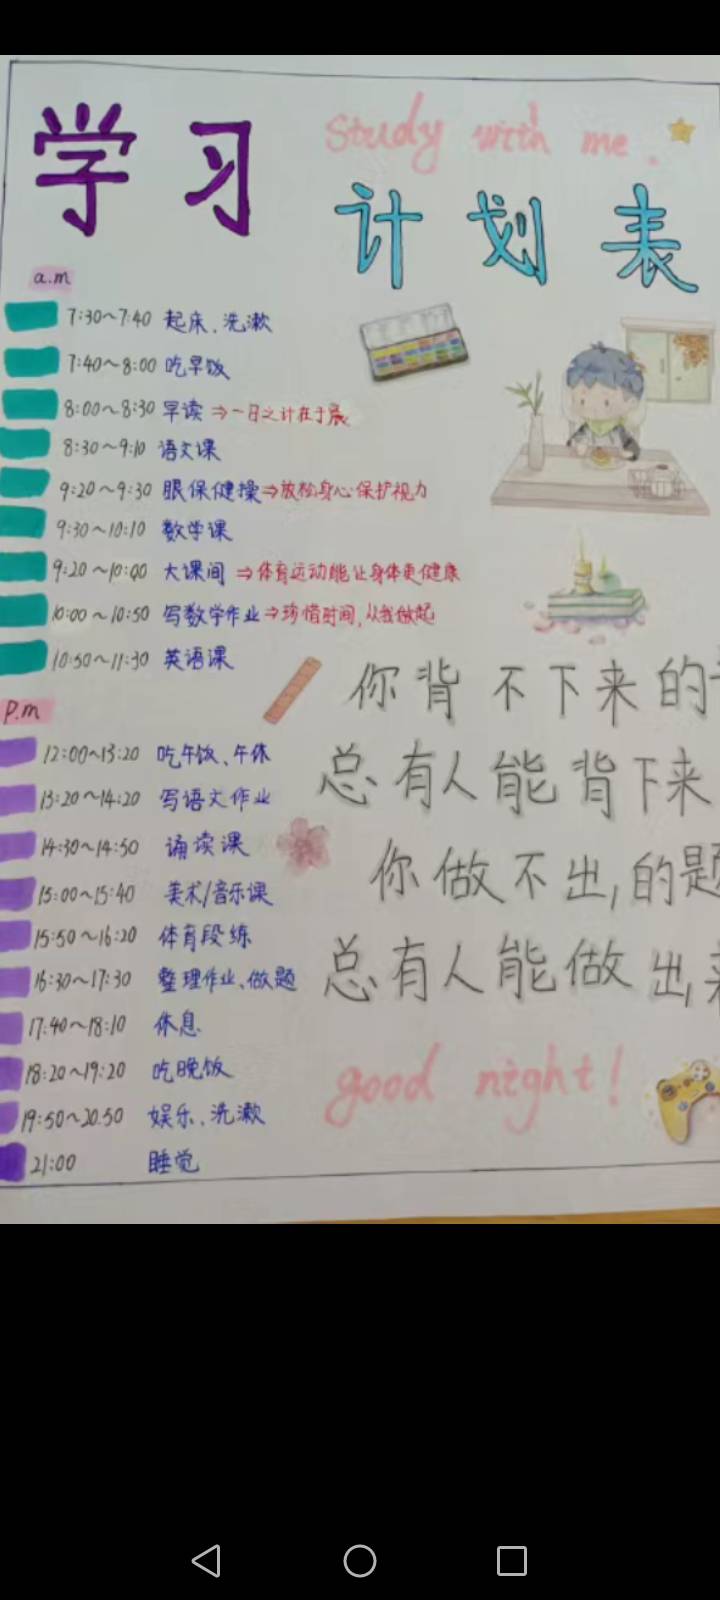 学习
Study with me.
计划表
a.m
7:30~7:40 起床、洗漱
7:40~8:00 吃早饭
8:00~8:30 早读 ⇒一日之计在于晨
8:30~9:10 语文课
9:20~9:30 眼保健操⇒放松身心保护视力
9:30~10:10 数学课
9:20~10:00 大课间 ⇒体育运动能让身体更健康
10:00~10:50 写数学作业⇒珍惜时间,从我做起
10:50~11:30 英语课
你背不下来的
P.m
12:00~13:20 吃午饭、午休
总有人能背下来
13:20~14:20 写语文作业
14:30~14:50 诵读课
你做不出,的题
15:00~15:40 美术/音乐课
15:50~16:20 体育段练
总有人能做出来
16:30~17:30 整理作业、做题
17:40~18:10 休息
18:20~19:20 吃晚饭
good night!
19:50~20:50 娱乐、洗漱
21:00 睡觉